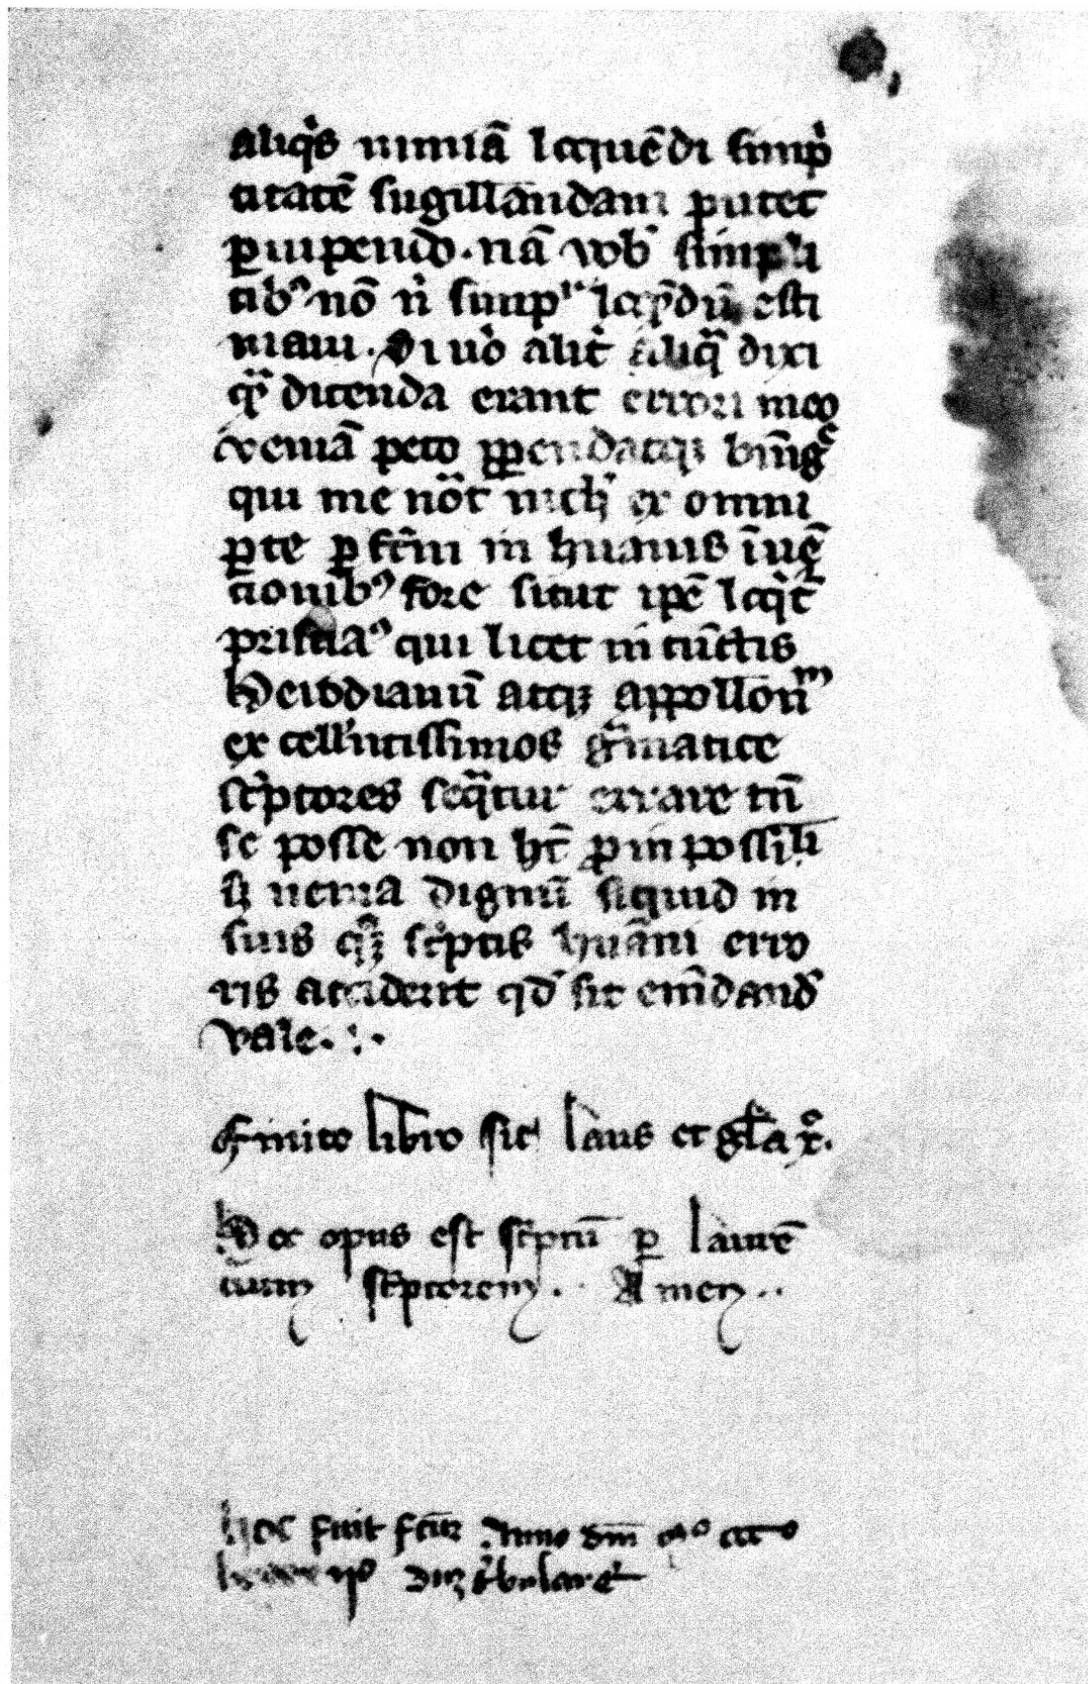 aliqͥs nimiā loquēdi simpͥ
citatē sugillandam putet
ꝑuipendo. nā vob̕ simpli
cibꝰ nō nͥ simpˡʳ loqͥdū esti
maui. Si u̾o alit̕ aliqᷓ dixi
qᷓ dicenda erant errori meo
veniā peto ꝑpendatqꝫ
qui me nōt nich̕ ex omni
ꝑte ꝑfc̄m in huanis īuē
cionibꝰ fore sicut ip̄e loqͥt̕
prisciaꝰ qui licet in cūctis
herodianū atqꝫ appollonᵐ
excell̕ntissimos gᷓmatice
scͥptores seqᷓtur errare tn̄
se posse non ht̄ ꝓ inpossili
sꝫ uenia dignū siquid in
suis qꝫ scͥptis huāni erro
ris acciderit qd̕ sit em̄dand̕
vale.:·
Finito libro sit laus et gl̄a xͦ.
Hoc opus est scͥptū ꝑ laurē
cium scͥptorem.. Amen..
hoc fuit fc̄um Anno dm̄ mͦ cccͦ